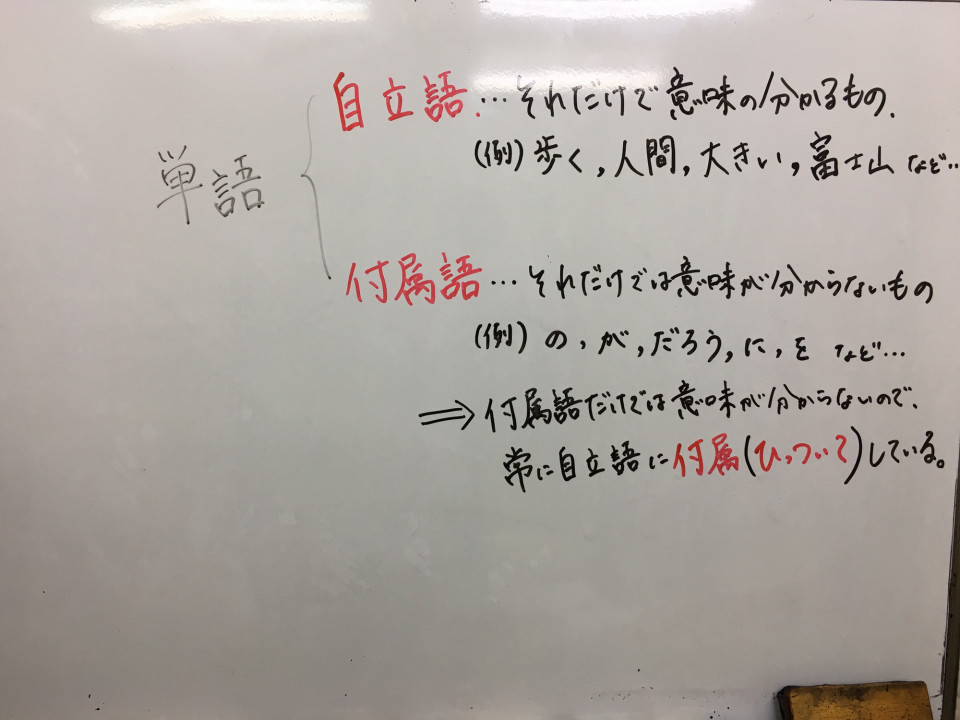 単語
自立語…それだけで意味の分かるもの.
(例)歩く,人間,大きい,富士山 など…
付属語…それだけでは意味が分からないもの
(例)の,が,だろう,に,を など…
⇒付属語だけでは意味が分からないので、
常に自立語に付属(ひっついて)している。